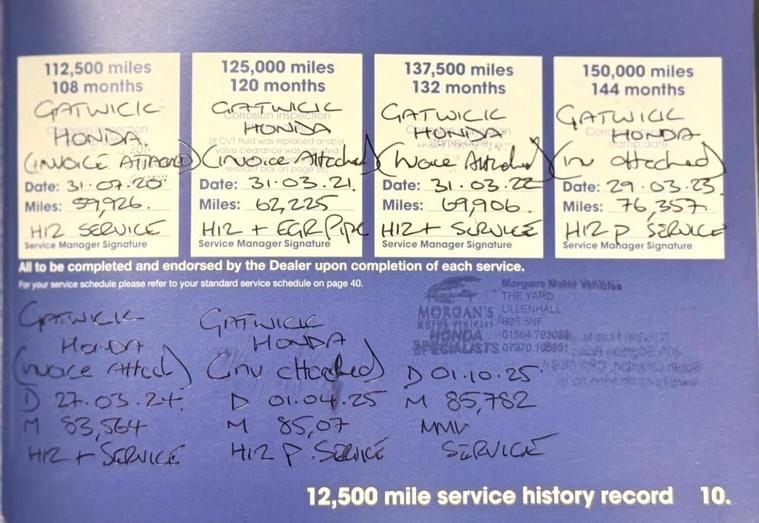 112,500 miles
108 months
GATWICK
HONDA
(INVOICE ATTACHED)
Date: 31-07-20
Miles: 59,926.
H12 SERVICE
Service Manager Signature
125,000 miles
120 months
GATWICK
Corrosion inspection
HONDA
(If CVT fluid was replaced and/or
valve clearance was
(invoice Attached)
relevant box on page
Date: 31.03.21.
Miles: 62,225
H12 + EGR Pipe
Service Manager Signature
137,500 miles
132 months
GATWICK
HONDA
(Invoice Attached)
Date: 31.03.22
Miles: 69,906.
H12+ SERVICE
Service Manager Signature
150,000 miles
144 months
GATWICK
HONDA
(inv attached)
Date: 29.03.23.
Miles: 76,357.
H12 P SERVICE
Service Manager Signature
All to be completed and endorsed by the Dealer upon completion of each service.
For your service schedule please refer to your standard service schedule on page 40.
GATWICK
HONDA
(Invoice Attach)
D 27.03.24.
M 83,564
H12 + SERVICE
GATWICK
HONDA
(inv attached)
D 01.04.25
M 85,07
H12 P. SERVICE
Morgans Motor Vehicles
THE YARD
ULLENHALL
B95 5NF
MORGAN'S
HONDA
SPECIALISTS
D 01.10.25
M 85,782
MMV
SERVICE
12,500 mile service history record 10.